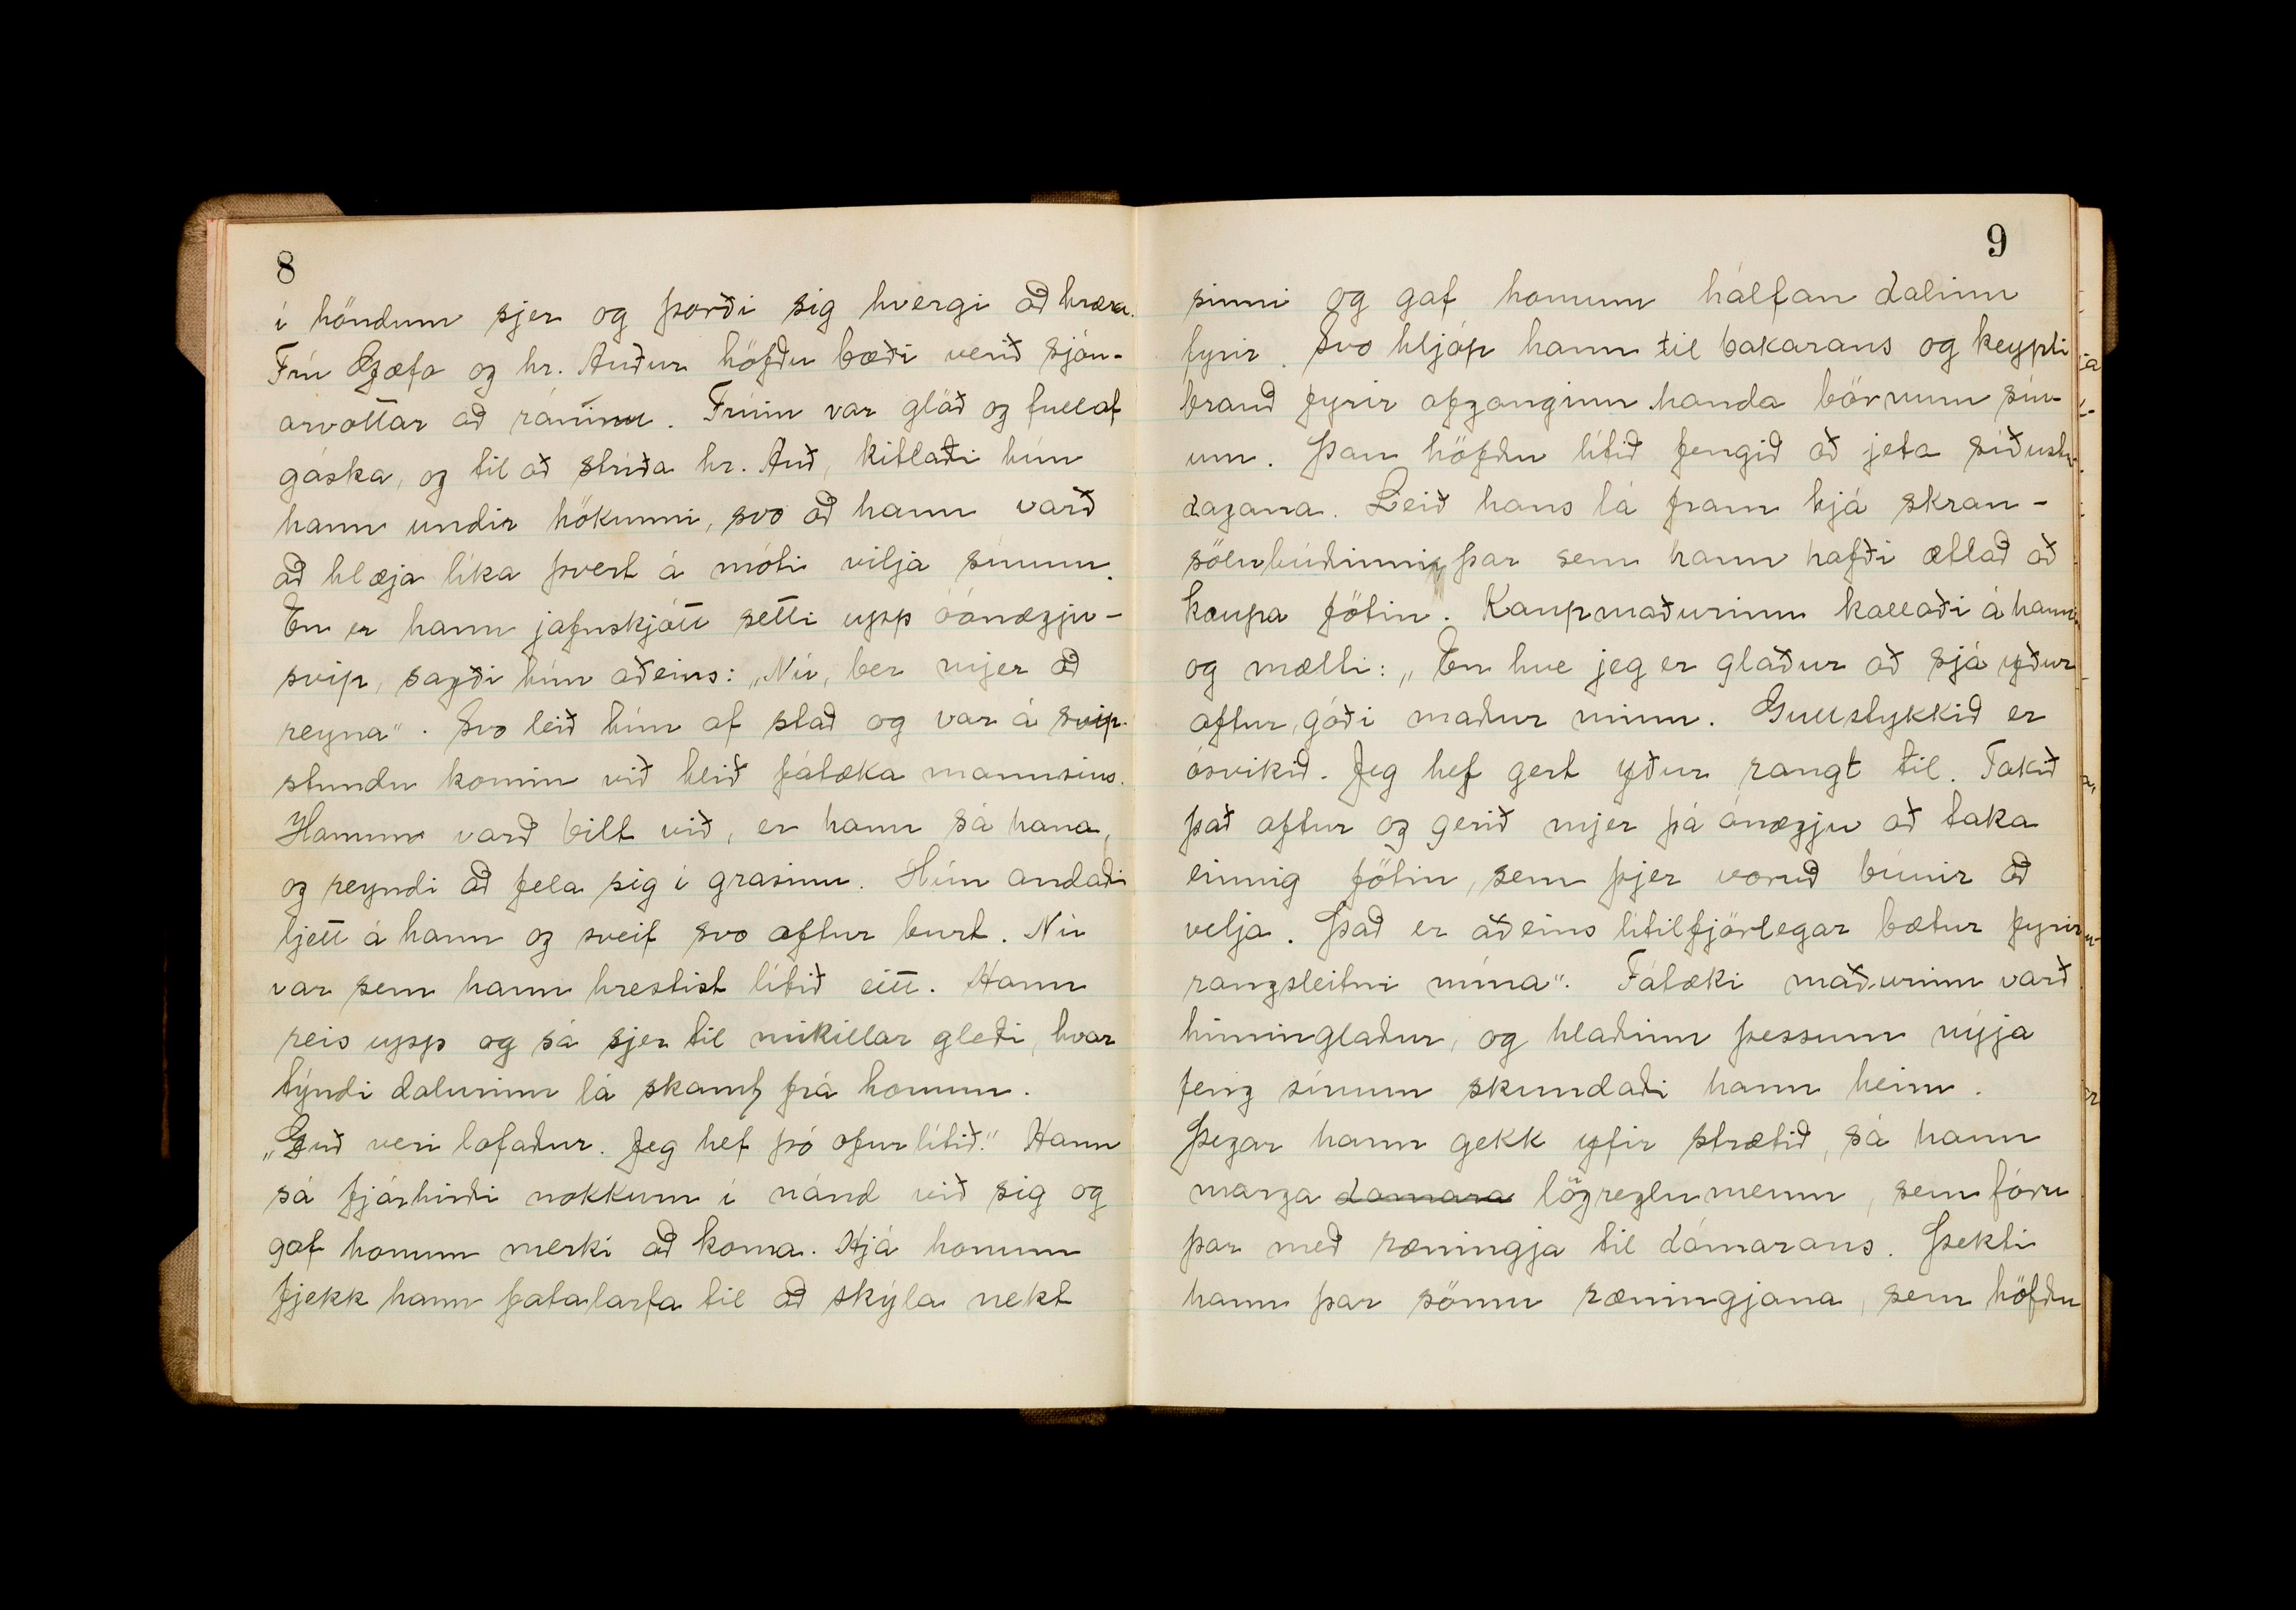 8
í höndum sjer og þorði sig hvergi að hræra.
Frú Gæfa og hr. Auður höfðu bæði verið sjón-
arvottar að ráninu. Frúin var glöð og full af
gáska, og til að stríða hr. Auð, kitlaði hún
hann undir hökunni, svo að hann varð
að hlæja líka þvert á móti vilja sínum.
En er hann jafnskjótt setti upp óánægju-
svip, sagði hún aðeins: „Nú, ber mjer að
reyna“. Svo leið hún af stað og var á svip-
stundu komin við hlið fátæka mannsins.
Honum varð bilt við, er hann sá hana,
og reyndi að fela sig í grasinu. Hún andaði
ljett á hann og sveif svo aftur burt. Nú
var sem hann hrestist lítið eitt. Hann
reis upp og sá sjer til mikillar gleði, hvar
týndi dalurinn lá skamt frá honum.
„Guð veri lofaður. Jeg hef þó ofurlítið.“ Hann
sá fjárhirði nokkurn í nánd við sig og
gaf honum merki að koma. Hjá honum
fjekk hann fatalarfa til að skýla nekt
9
sinni og gaf honum hálfan dalinn
fyrir. Svo hljóp hann til bakarans og keypti
brauð fyrir afganginn handa börnum sín-
um. Þau höfðu lítið fengið að jeta síðustu
dagana. Leið hans lá fram hjá skran-
sölubúðinni, þar sem hann hafði ætlað að
kaupa fötin. Kaupmaðurinn kallaði á hann
og mælti: „En hve jeg er glaður að sjá yður
aftur, góði maður minn. Gullstykkið er
ósvikið. Jeg hef gert yður rangt til. Takið
það aftur og gerið mjer þá ánægju að taka
einnig fötin, sem þjer voruð búnir að
velja. Það er aðeins lítilfjörlegar bætur fyrir
rangsleitni mína“. Fátæki maðurinn varð
himinglaður, og hlaðinn þessum nýja
feng sínum skundaði hann heim.
Þegar hann gekk yfir strætið, sá hann
marga damara lögreglumenn, sem fóru
þar með ræningja til dómarans. Þekti
hann þar sömu ræningjana, sem höfðu